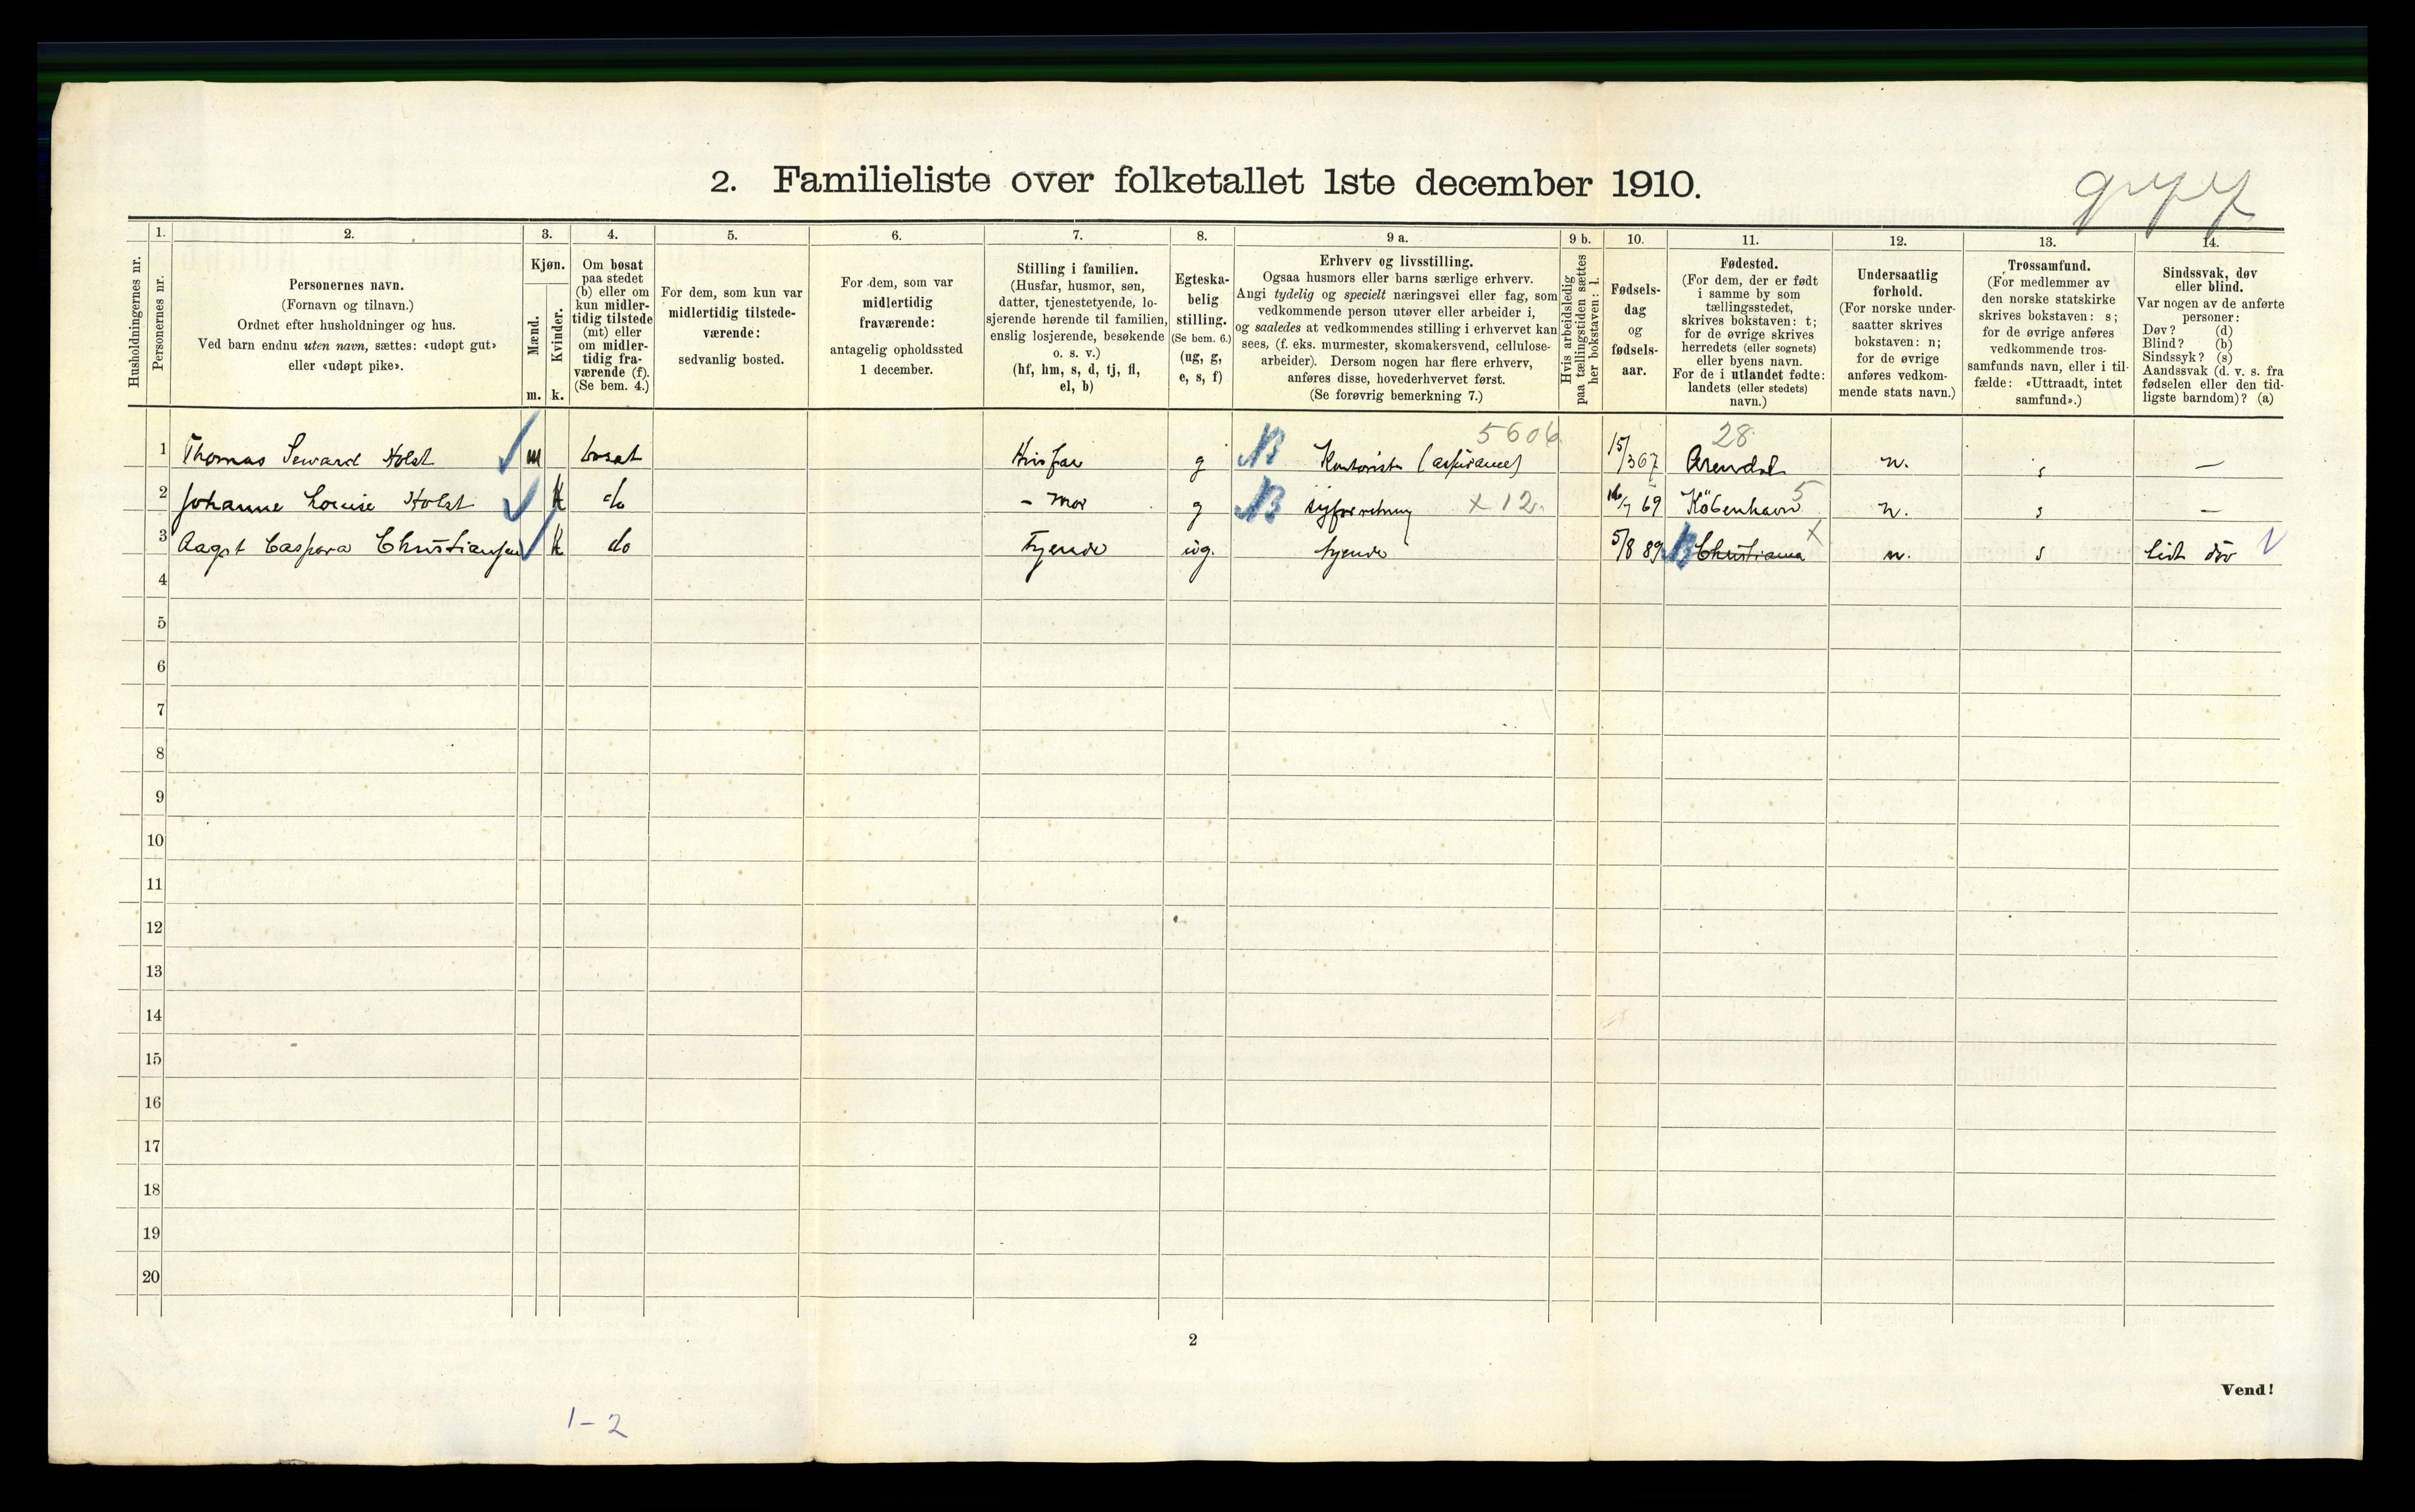 2. Familieliste over folketallet 1ste december 1910.
Husholdningernes nr.
1.
Personernes nr.
2.
Personernes navn.
(Fornavn og tilnavn.)
Ordnet efter husholdninger og hus.
Ved barn endnu uten navn, sættes: «udøpt gut»
eller «udøpt pike».
3.
Kjøn.
Mænd.
Kvinder.
m. k.
4.
Om bosat
paa stedet
(b) eller om
kun midler-
tidig tilstede
(mt) eller
om midler-
tidig fra-
værende (f).
(Se bem. 4.)
5.
For dem, som kun var
midlertidig tilstede-
værende:
sedvanlig bosted.
6.
For dem, som var
midlertidig
fraværende:
antagelig opholdssted
1 december.
7.
Stilling i familien.
(Husfar, husmor, søn,
datter, tjenestetyende, lo-
sjerende hørende til familien,
enslig losjerende, besøkende
o. s. v.)
(hf, hm, s, d, tj, fl,
el, b)
8.
Egteska-
belig
stilling.
(Se bem. 6.)
(ug, g,
e, s, f)
9 a.
Erhverv og livsstilling.
Ogsaa husmors eller barns særlige erhverv.
Angi tydelig og specielt næringsvei eller fag, som
vedkommende person utøver eller arbeider i,
og saaledes at vedkommendes stilling i erhvervet kan
sees, (f. eks. murmester, skomakersvend, cellulose-
arbeider). Dersom nogen har flere erhverv,
anføres disse, hovederhvervet først.
(Se forøvrig bemerkning 7.)
9 b.
Hvis arbeidsledig
paa tællingstiden sættes
her bokstaven: l.
10.
Fødsels-
dag
og
fødsels-
aar.
11.
Fødested.
(For dem, der er født
i samme by som
tællingsstedet,
skrives bokstaven: t;
for de øvrige skrives
herredets (eller sognets)
eller byens navn.
For de i utlandet fødte:
landets (eller stedets)
navn.)
12.
Undersaatlig
forhold.
(For norske under-
saatter skrives
bokstaven: n;
for de øvrige
anføres vedkom-
mende stats navn.)
13.
Trossamfund.
(For medlemmer av
den norske statskirke
skrives bokstaven: s;
for de øvrige anføres
vedkommende tros-
samfunds navn, eller i til-
fælde: «Uttraadt, intet
samfund».)
14.
Sindssvak, døv
eller blind.
Var nogen av de anførte
personer:
Døv? (d)
Blind? (b)
Sindssyk? (s)
Aandssvak (d. v. s. fra
fødselen eller den tid-
ligste barndom)? (a)
5606 28
1 Thomas Seward Holst m bosat Husfar g NB Kontorist (aspirance) 15/3 67 Arendal n. s —
2 Johanne Louise Holst k do - mor g NB syforretning x 12. 16/7 69 København 5 n. s —
3 Aagot Caspara Christiansen k do Tjende ug. tjende 5/8 89 NB Christiania x n. s lidt döv
4
5
6
7
8
9
10
11
12
13
14
15
16
17
18
19
20
2
Vend!
1-2